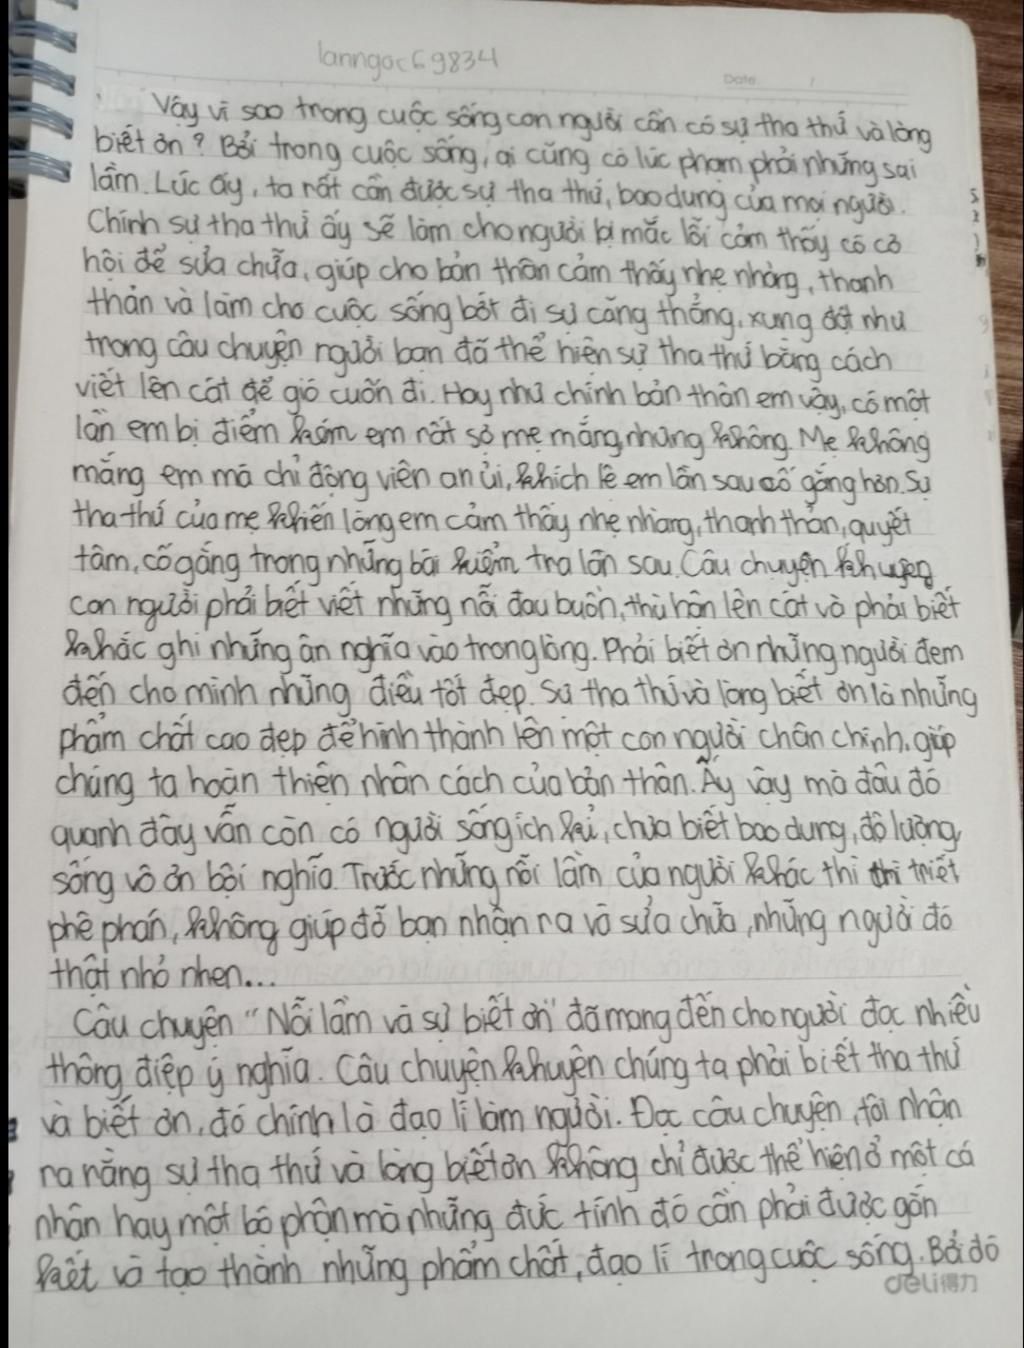 lanngoc69834
Date / /
Vậy vì sao trong cuộc sống con người cần có sự tha thứ và lòng
biết ơn? Bởi trong cuộc sống, ai cũng có lúc phạm phải những sai
lầm. Lúc ấy, ta rất cần được sự tha thứ, bao dung của mọi người.
Chính sự tha thứ ấy sẽ làm cho người bị mắc lỗi cảm thấy có cơ
hội để sửa chữa, giúp cho bản thân cảm thấy nhẹ nhàng, thanh
thản và làm cho cuộc sống bớt đi sự căng thẳng, xung đột như
trong câu chuyện người bạn đã thể hiện sự tha thứ bằng cách
viết lên cát để gió cuốn đi. Hay như chính bản thân em vậy, có một
lần em bị điểm kém em rất sợ mẹ mắng nhưng không. Mẹ không
mắng em mà chỉ động viên an ủi, khích lệ em lần sau cố gắng hơn. Sự
tha thứ của mẹ khiến lòng em cảm thấy nhẹ nhàng, thanh thản, quyết
tâm, cố gắng trong những bài kiểm tra lần sau. Câu chuyện khuyên
con người phải biết viết những nỗi đau buồn, thù hận lên cát và phải biết
khắc ghi những ân nghĩa vào trong lòng. Phải biết ơn những người đem
đến cho mình những điều tốt đẹp. Sự tha thứ và lòng biết ơn là những
phẩm chất cao đẹp để hình thành lên một con người chân chính, giúp
chúng ta hoàn thiện nhân cách của bản thân. Ấy vậy mà đâu đó
quanh đây vẫn còn có người sống ích kỉ, chưa biết bao dung, độ lượng,
sống vô ơn bội nghĩa. Trước những nỗi lầm của người khác thì triết
phê phán, không giúp đỡ bạn nhận ra và sửa chữa, những người đó
thật nhỏ nhen...
Câu chuyện "Nỗi lầm và sự biết ơn" đã mang đến cho người đọc nhiều
thông điệp ý nghĩa. Câu chuyện khuyên chúng ta phải biết tha thứ
và biết ơn, đó chính là đạo lí làm người. Đọc câu chuyện, tôi nhận
ra rằng sự tha thứ và lòng biết ơn không chỉ được thể hiện ở một cá
nhân hay một bộ phận mà những đức tính đó cần phải được gắn
kết và tạo thành những phẩm chất, đạo lí trong cuộc sống. Bởi đó
deli得力